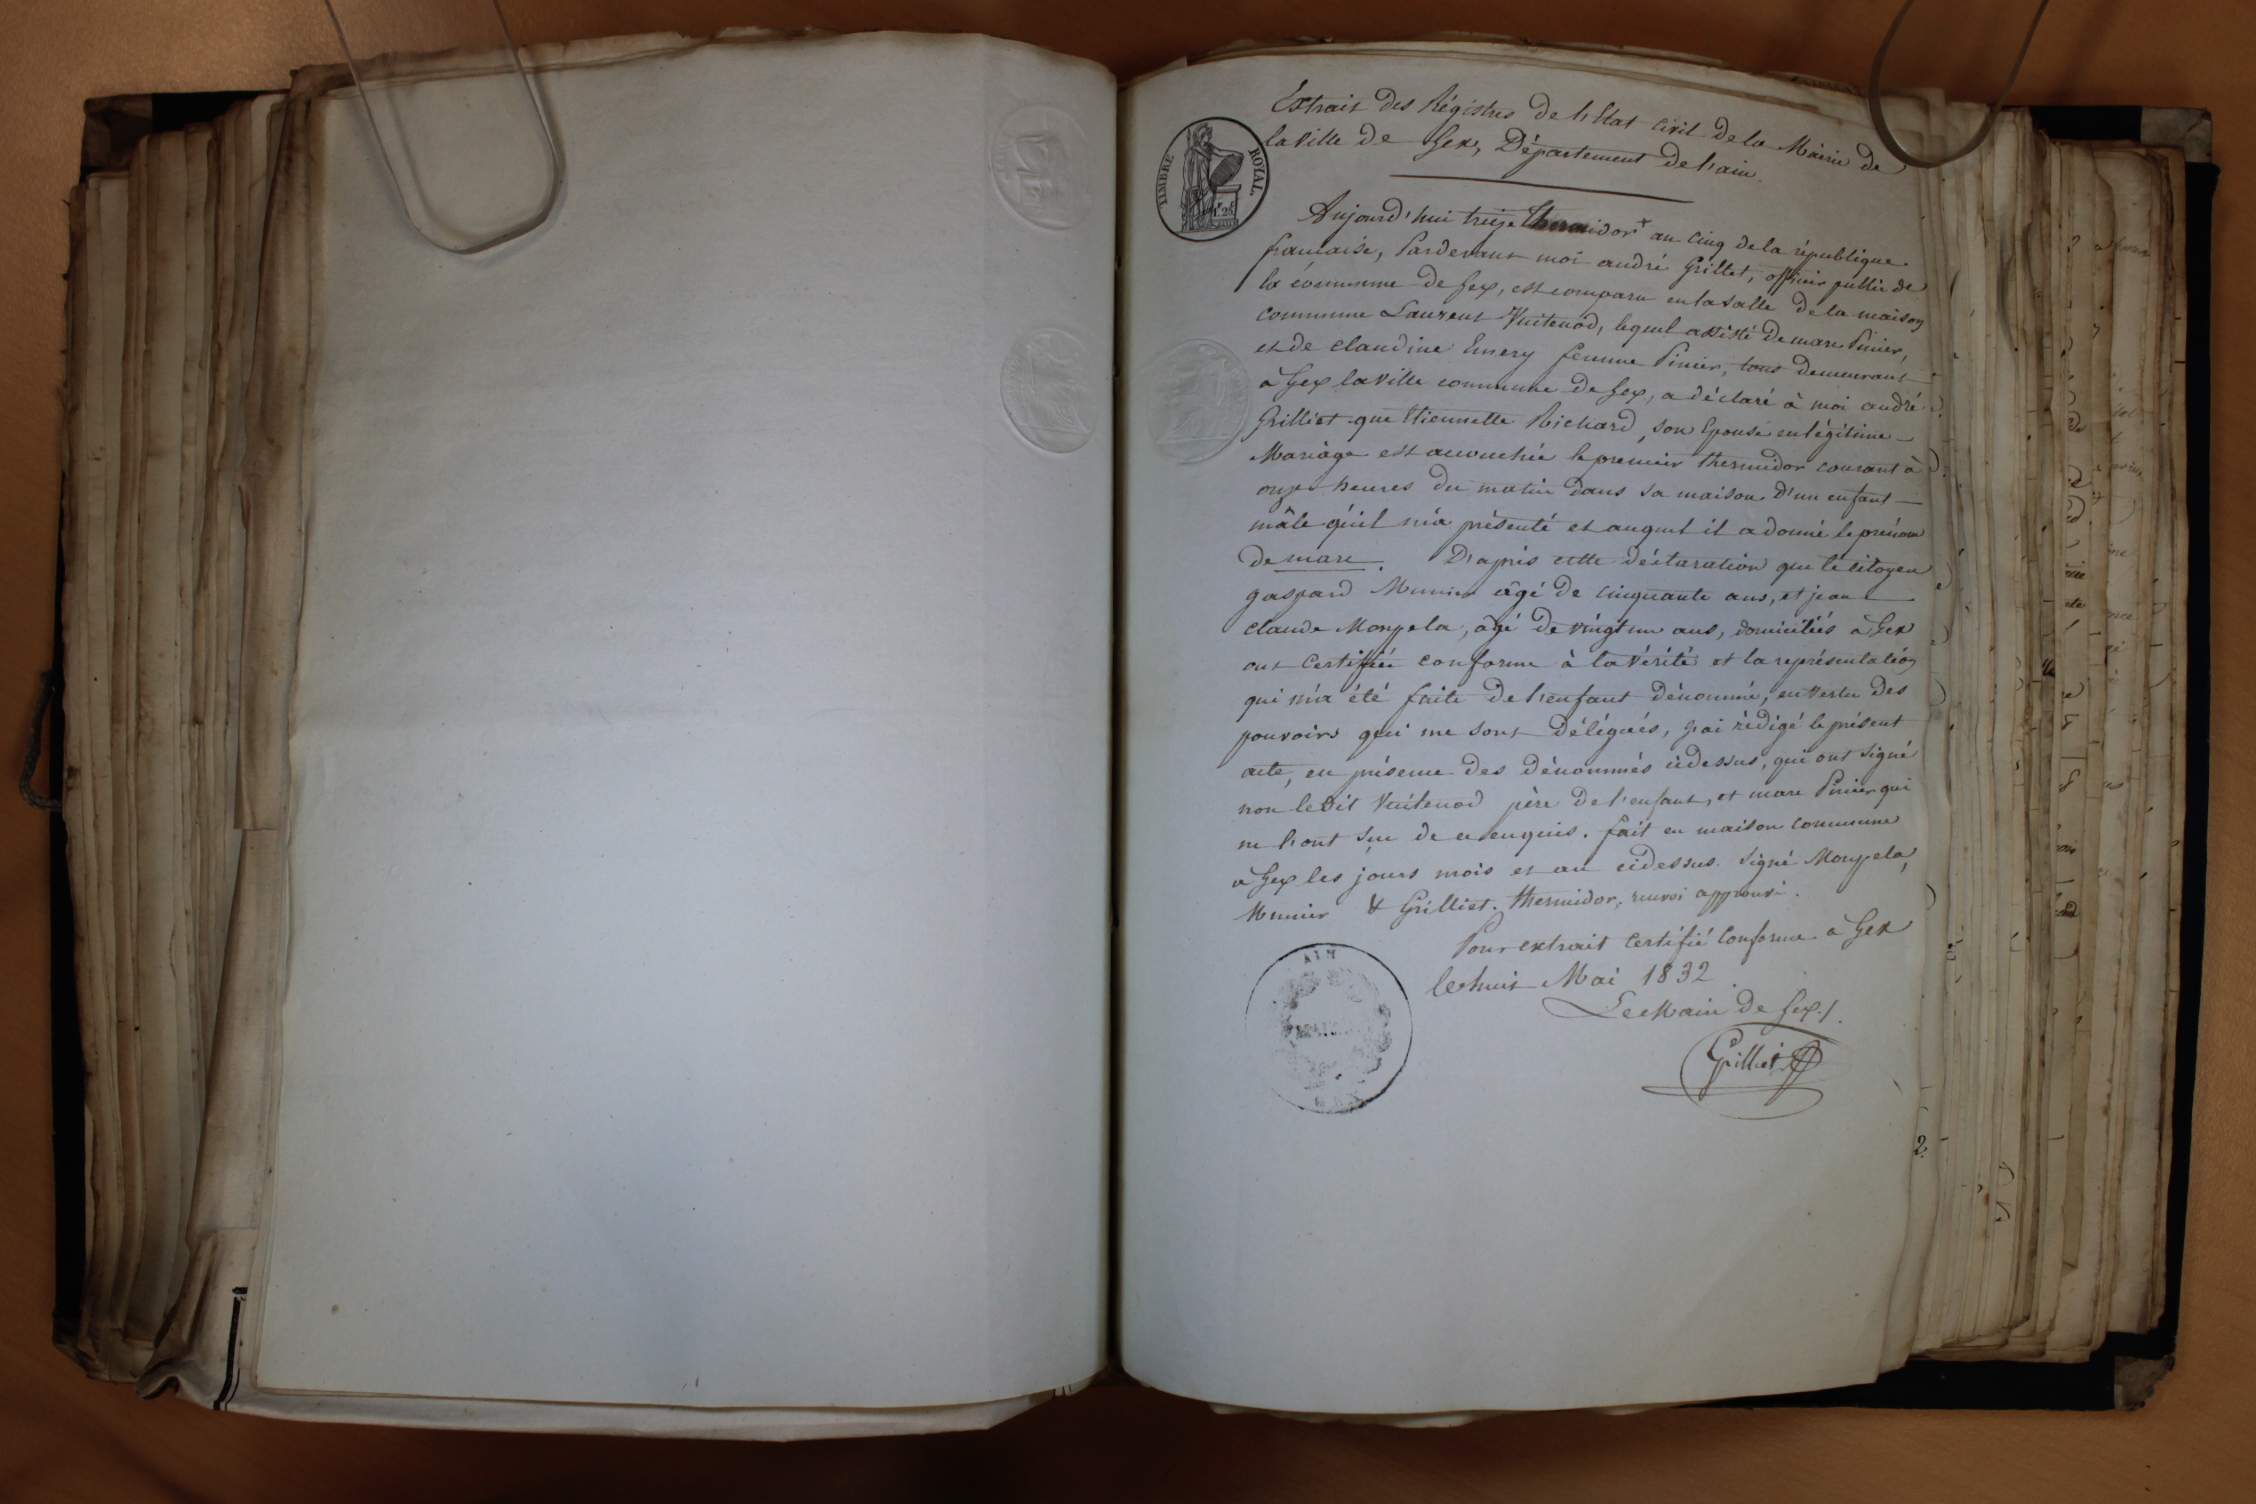 Extrait des Régistres de l'Etat civil de la Mairie de
la ville de Gex, Département de l'ain.
TIMBRE ROYAL
1f. 25c
Aujourd'hui treize thermidor + an cinq de la république
française, Pardevant moi andré Grillet, officier public de
la commune de Gex, est comparu en la salle de la maison
commune Laurent Vuitenod, lequel assisté de marc Pinier,
et de claudine Emery femme Pinier, tous demeurant
à Gex la ville commune de Gex, a déclaré à moi andré
Grilliet que Etiennette Richard, son Epouse en légitime
Mariage est accouchée le premier thermidor courant à
onze heures du matin dans sa maison d'un enfant
mâle qu'il m'a présenté et auquel il a donné le prénom
de marc. D'après cette déclaration que le citoyen
gaspard Munier âgé de cinquante ans, et jean
claude Monpela, âgé de vingt un ans, domiciliés à Gex
ont certifiée conforme à la vérité et la représentation
qui m'a été faite de l'enfant dénommé, en vertu des
pouvoirs qui me sont délégués, j'ai rédigé le présent
acte, en présence des dénommés cidessus, qui ont signé
non ledit Vuitenod père de l'enfant, et marc Pinier qui
ne l'ont su de ce enquis. fait en maison commune
à Gex les jours mois et an cidessus. Signé Monpela,
Munier & Grilliet. thermidor, renvoi approuvé.
Pour extrait certifié conforme à Gex
le huit Mai 1832
Le Maire de Gex
Grilliet
AIN
2.